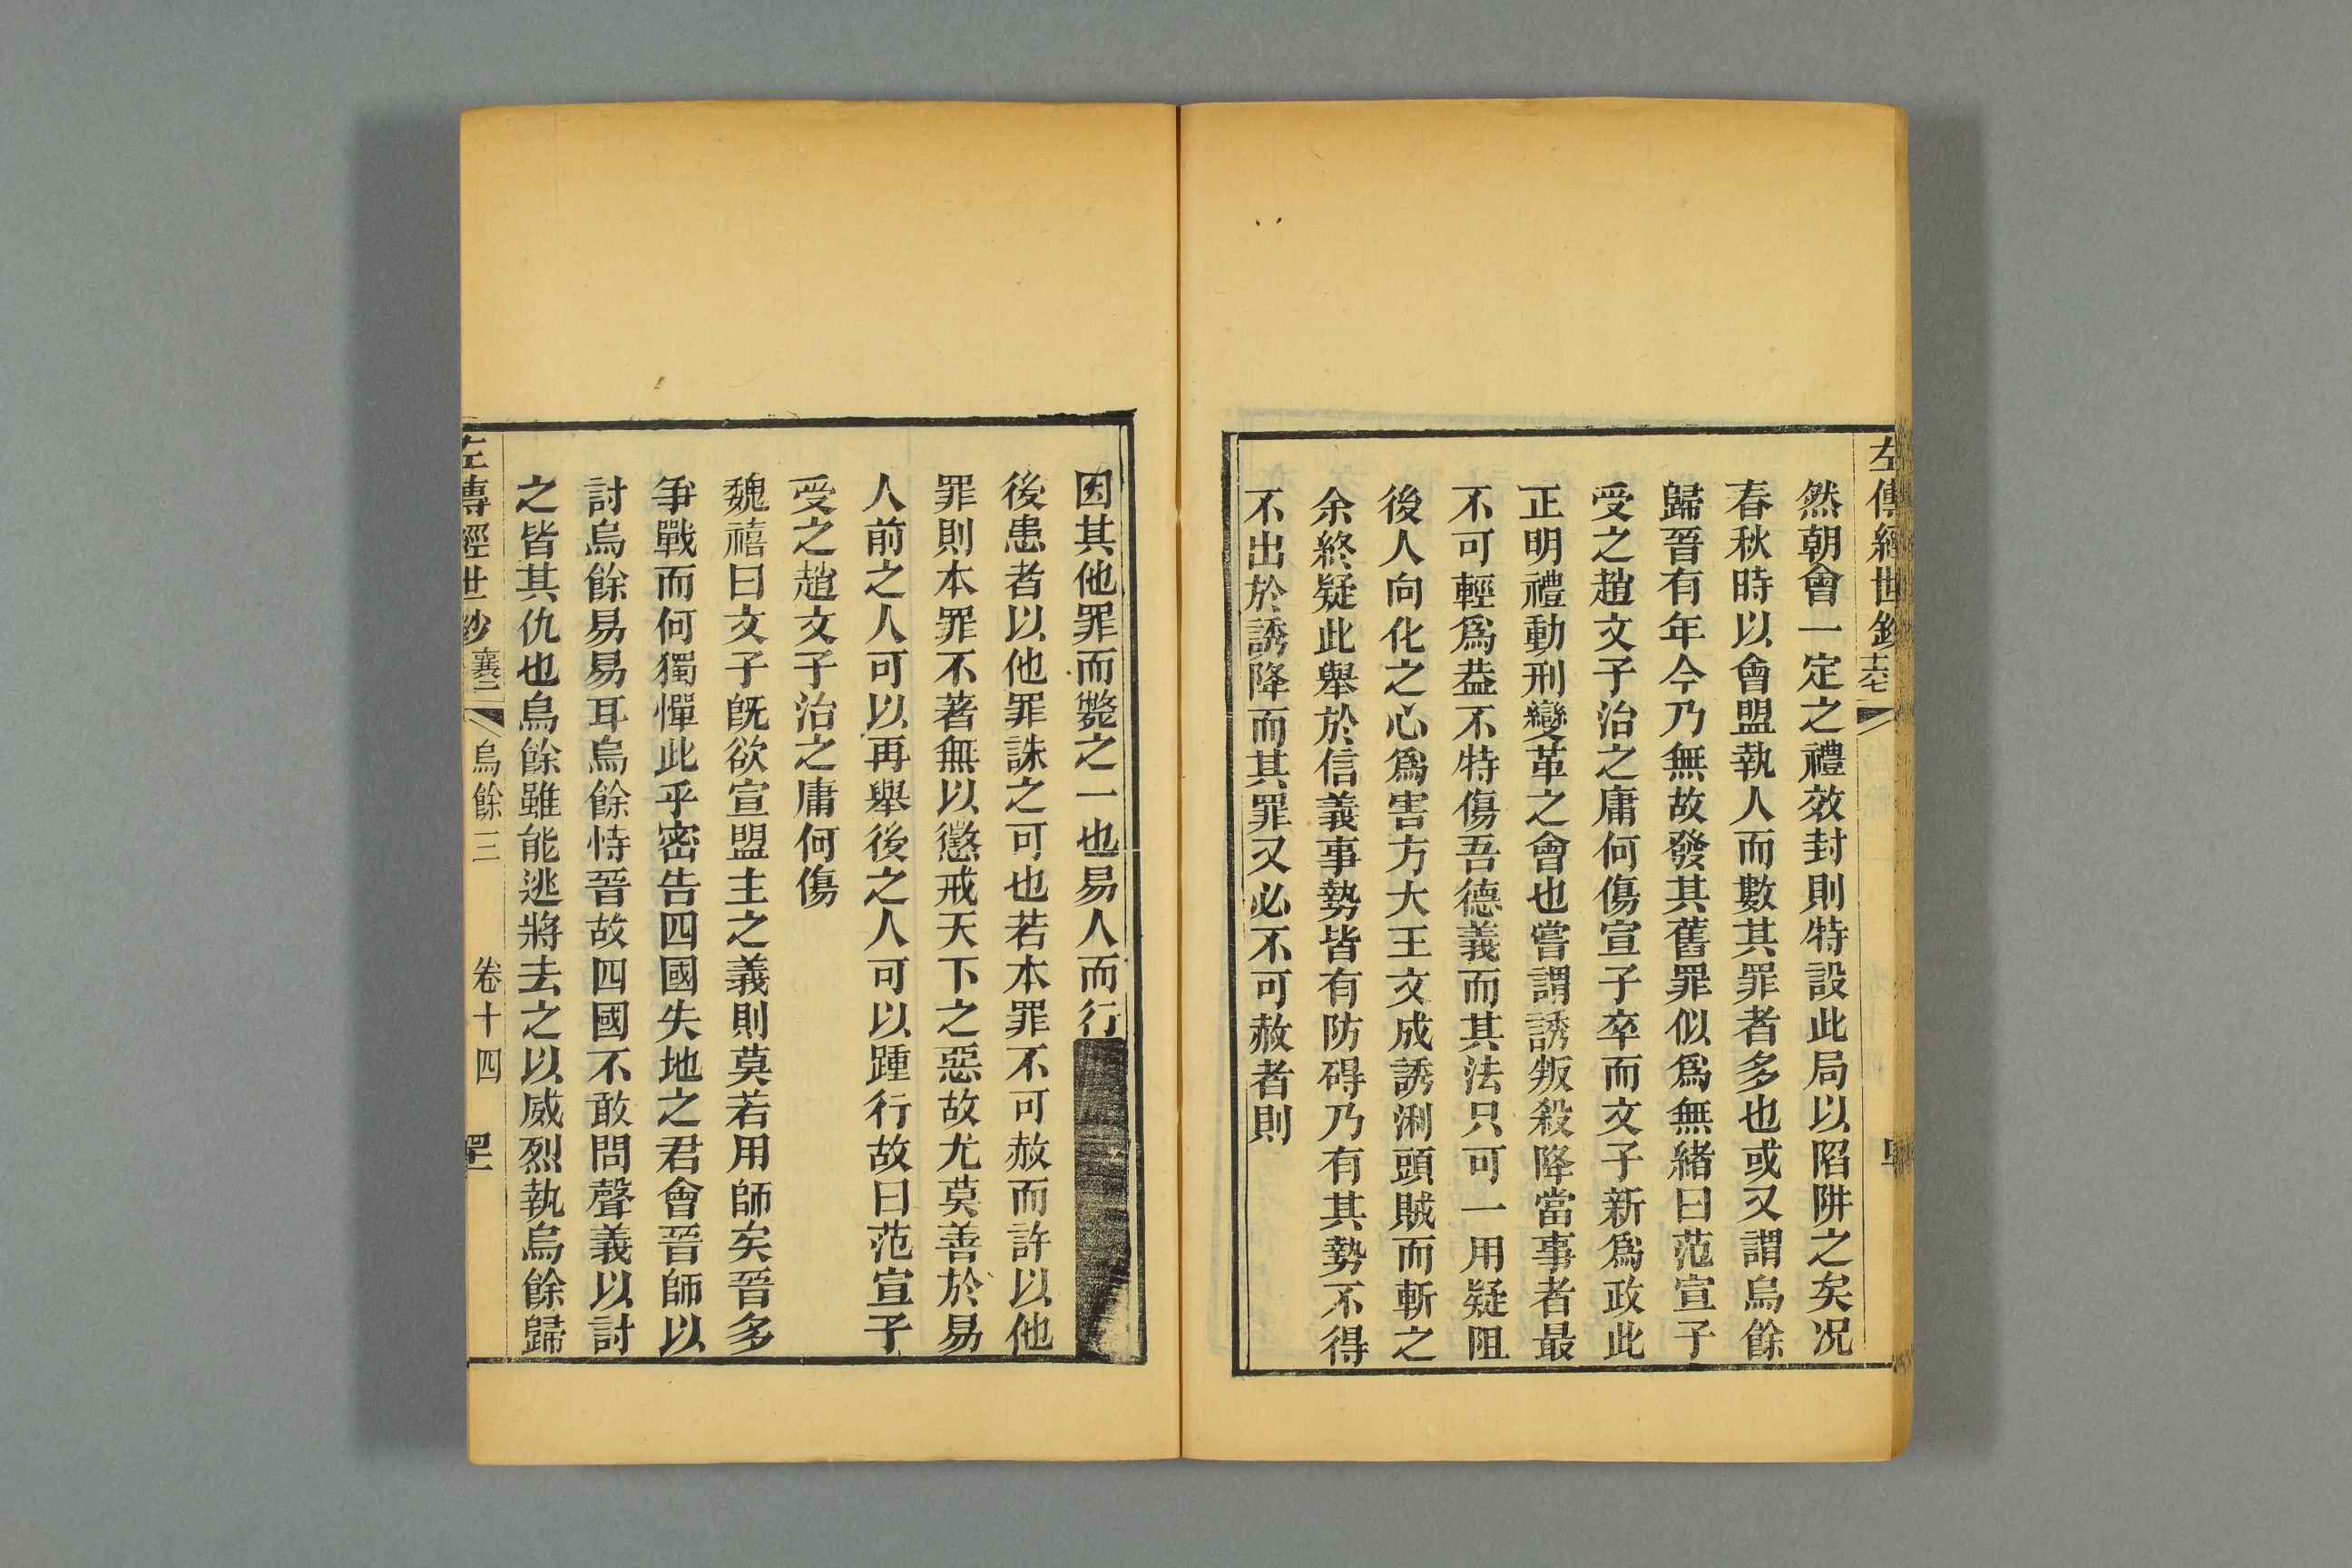 左傳經世鈔
然朝會一定之禮效封則特設此局以陷阱之矣况
春秋時以會盟執人而數其罪者多也或又謂烏餘
歸晉有年今乃無故發其舊罪似爲無緒曰范宣子
受之趙文子治之庸何傷宣子卒而文子新爲政此
正明禮動刑變革之會也嘗謂誘叛殺降當事者最
不可輕爲葢不特傷吾德義而其法只可一用疑阻
後人向化之心爲害方大王文成誘浰頭賊而斬之
余終疑此舉於信義事勢皆有防碍乃有其勢不得
不出於誘降而其罪又必不可赦者則
因其他罪而斃之一也易人而行
後患者以他罪誅之可也若本罪不可赦而許以他
罪則本罪不著無以懲戒天下之惡故尤莫善於易
人前之人可以再舉後之人可以踵行故曰范宣子
受之趙文子治之庸何傷
魏禧曰文子旣欲宣盟主之義則莫若用師矣晉多
爭戰而何獨憚此乎密告四國失地之君會晉師以
討烏餘易易耳烏餘恃晉故四國不敢問聲義以討
之皆其仇也烏餘雖能逃將去之以威烈執烏餘歸
左傳經世鈔 烏餘三 卷十四